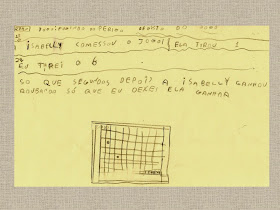 ISABELLY COMESSOU O JOGO! ELA TIROU 1
EU TIREI O 6
SO QUE SEGUNDOS DEPOIS A ISABELLY GANHOU
ROUBANDO SÓ QUE EU DEXEI ELA GANHAR